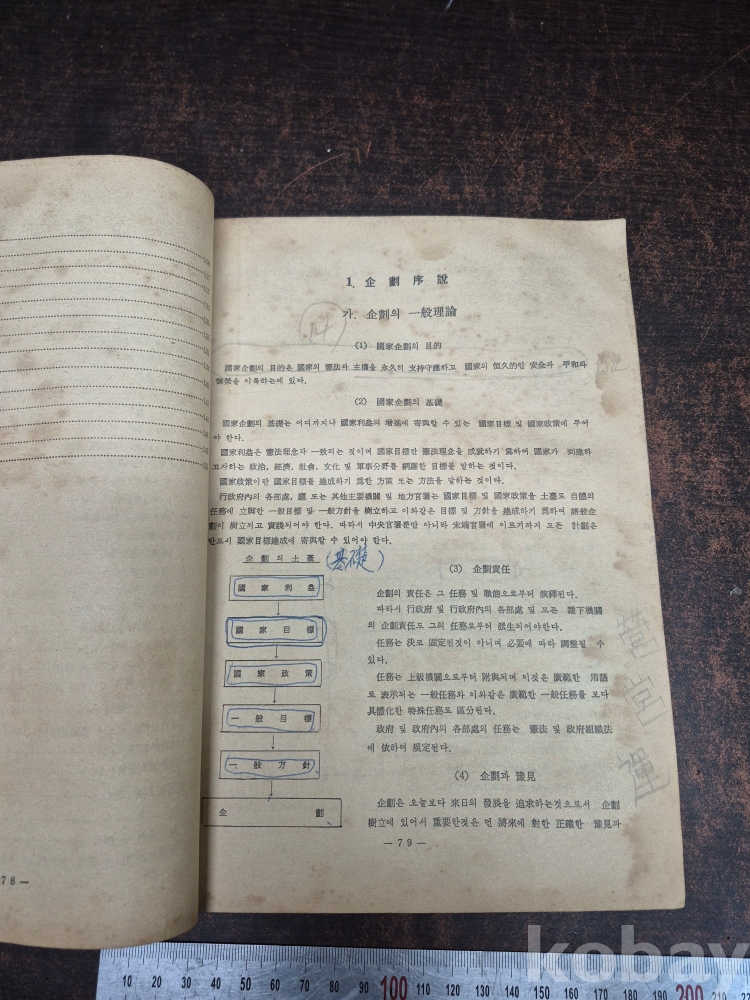 1. 企劃序說
가. 企劃의 一般理論
14
(1) 國家企劃의 目的
國家企劃의 目的은 國家의 憲法과 主權을 永久히 支持守護하고 國家의 恒久的인 安全과 平和와
繁榮을 이룩하는데 있다.
(2) 國家企劃의 基礎
國家企劃의 基礎는 어디까지나 國家利益의 增進에 寄與할 수 있는 國家目標 및 國家政策에 두어
야 한다.
國家利益은 憲法理念과 一致되는 것이며 國家目標란 憲法理念을 成就하기 爲하여 國家가 到達하
고자하는 政治, 經濟, 社會, 文化 및 軍事分野를 網羅한 目標를 말하는 것이다.
國家政策이란 國家目標를 達成하기 爲한 方策 또는 方法을 말하는 것이다.
行政府內의 各部處, 廳 또는 其他主要機關 및 地方官署는 國家目標 및 國家政策을 土臺로 自體의
任務에 立脚한 一般目標 및 一般方針을 樹立하고 이와같은 目標 및 方針을 達成하기 爲하여 諸般企
劃이 樹立되고 實踐되어야 한다. 따라서 中央官署뿐만 아니라 末端官署에 이르기까지 모든 計劃은
반드시 國家目標達成에 寄與할 수 있어야 한다.
企劃의 土臺 (基礎)
國家利益
國家目標
國家政策
一般目標
一般方針
企劃
(3) 企劃責任
企劃의 責任은 그 任務 및 職能으로부터 演繹된다.
따라서 行政府 및 行政府內의 各部處 및 모든 隸下機關
의 企劃責任도 그의 任務로부터 派生되어야한다.
任務는 決코 固定된것이 아니며 必要에 따라 調整될 수
있다.
任務는 上級機關으로부터 附與되며 이것은 廣範한 用語
로 表示되는 一般任務와 이와같은 廣範한 一般任務를 보다
具體化한 特殊任務로 區分된다.
政府 및 政府內의 各部處의 任務는 憲法 및 政府組織法
에 依하여 規定된다.
(4) 企劃과 豫見
企劃은 오늘보다 來日의 發展을 追求하는것으로서 企劃
樹立에 있어서 重要한것은 먼 將來에 對한 正確한 豫見과
— 79 —
78 —
10 20 30 40 50 60 70 80 90 100 110 120 130 140 150 160 170 180 190 200 210
kobay